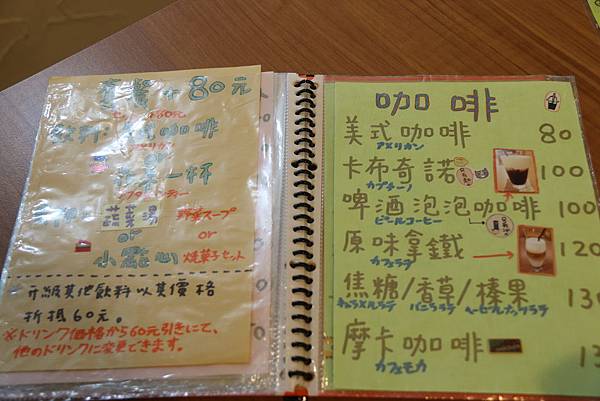 套餐+80元
飲料:美式咖啡
アメリカン
or
一杯
蔬菜湯
野菜スープ
or
or
小點心
焼菓子セット
升級其他飲料以其價格
折抵60元。
※ドリンク価格から60元引きにて、
他のドリンクに変更できます。
咖啡
美式咖啡 80
アメリカン
卡布奇諾 100
カプチーノ
啤酒泡泡咖啡 100
ビールコーヒー
原味拿鐵 120
カフェラテ
焦糖/香草/榛果 13
キャラメルラテ バニララテ ヘーゼルナッツラテ
摩卡咖啡 13
カフェモカ